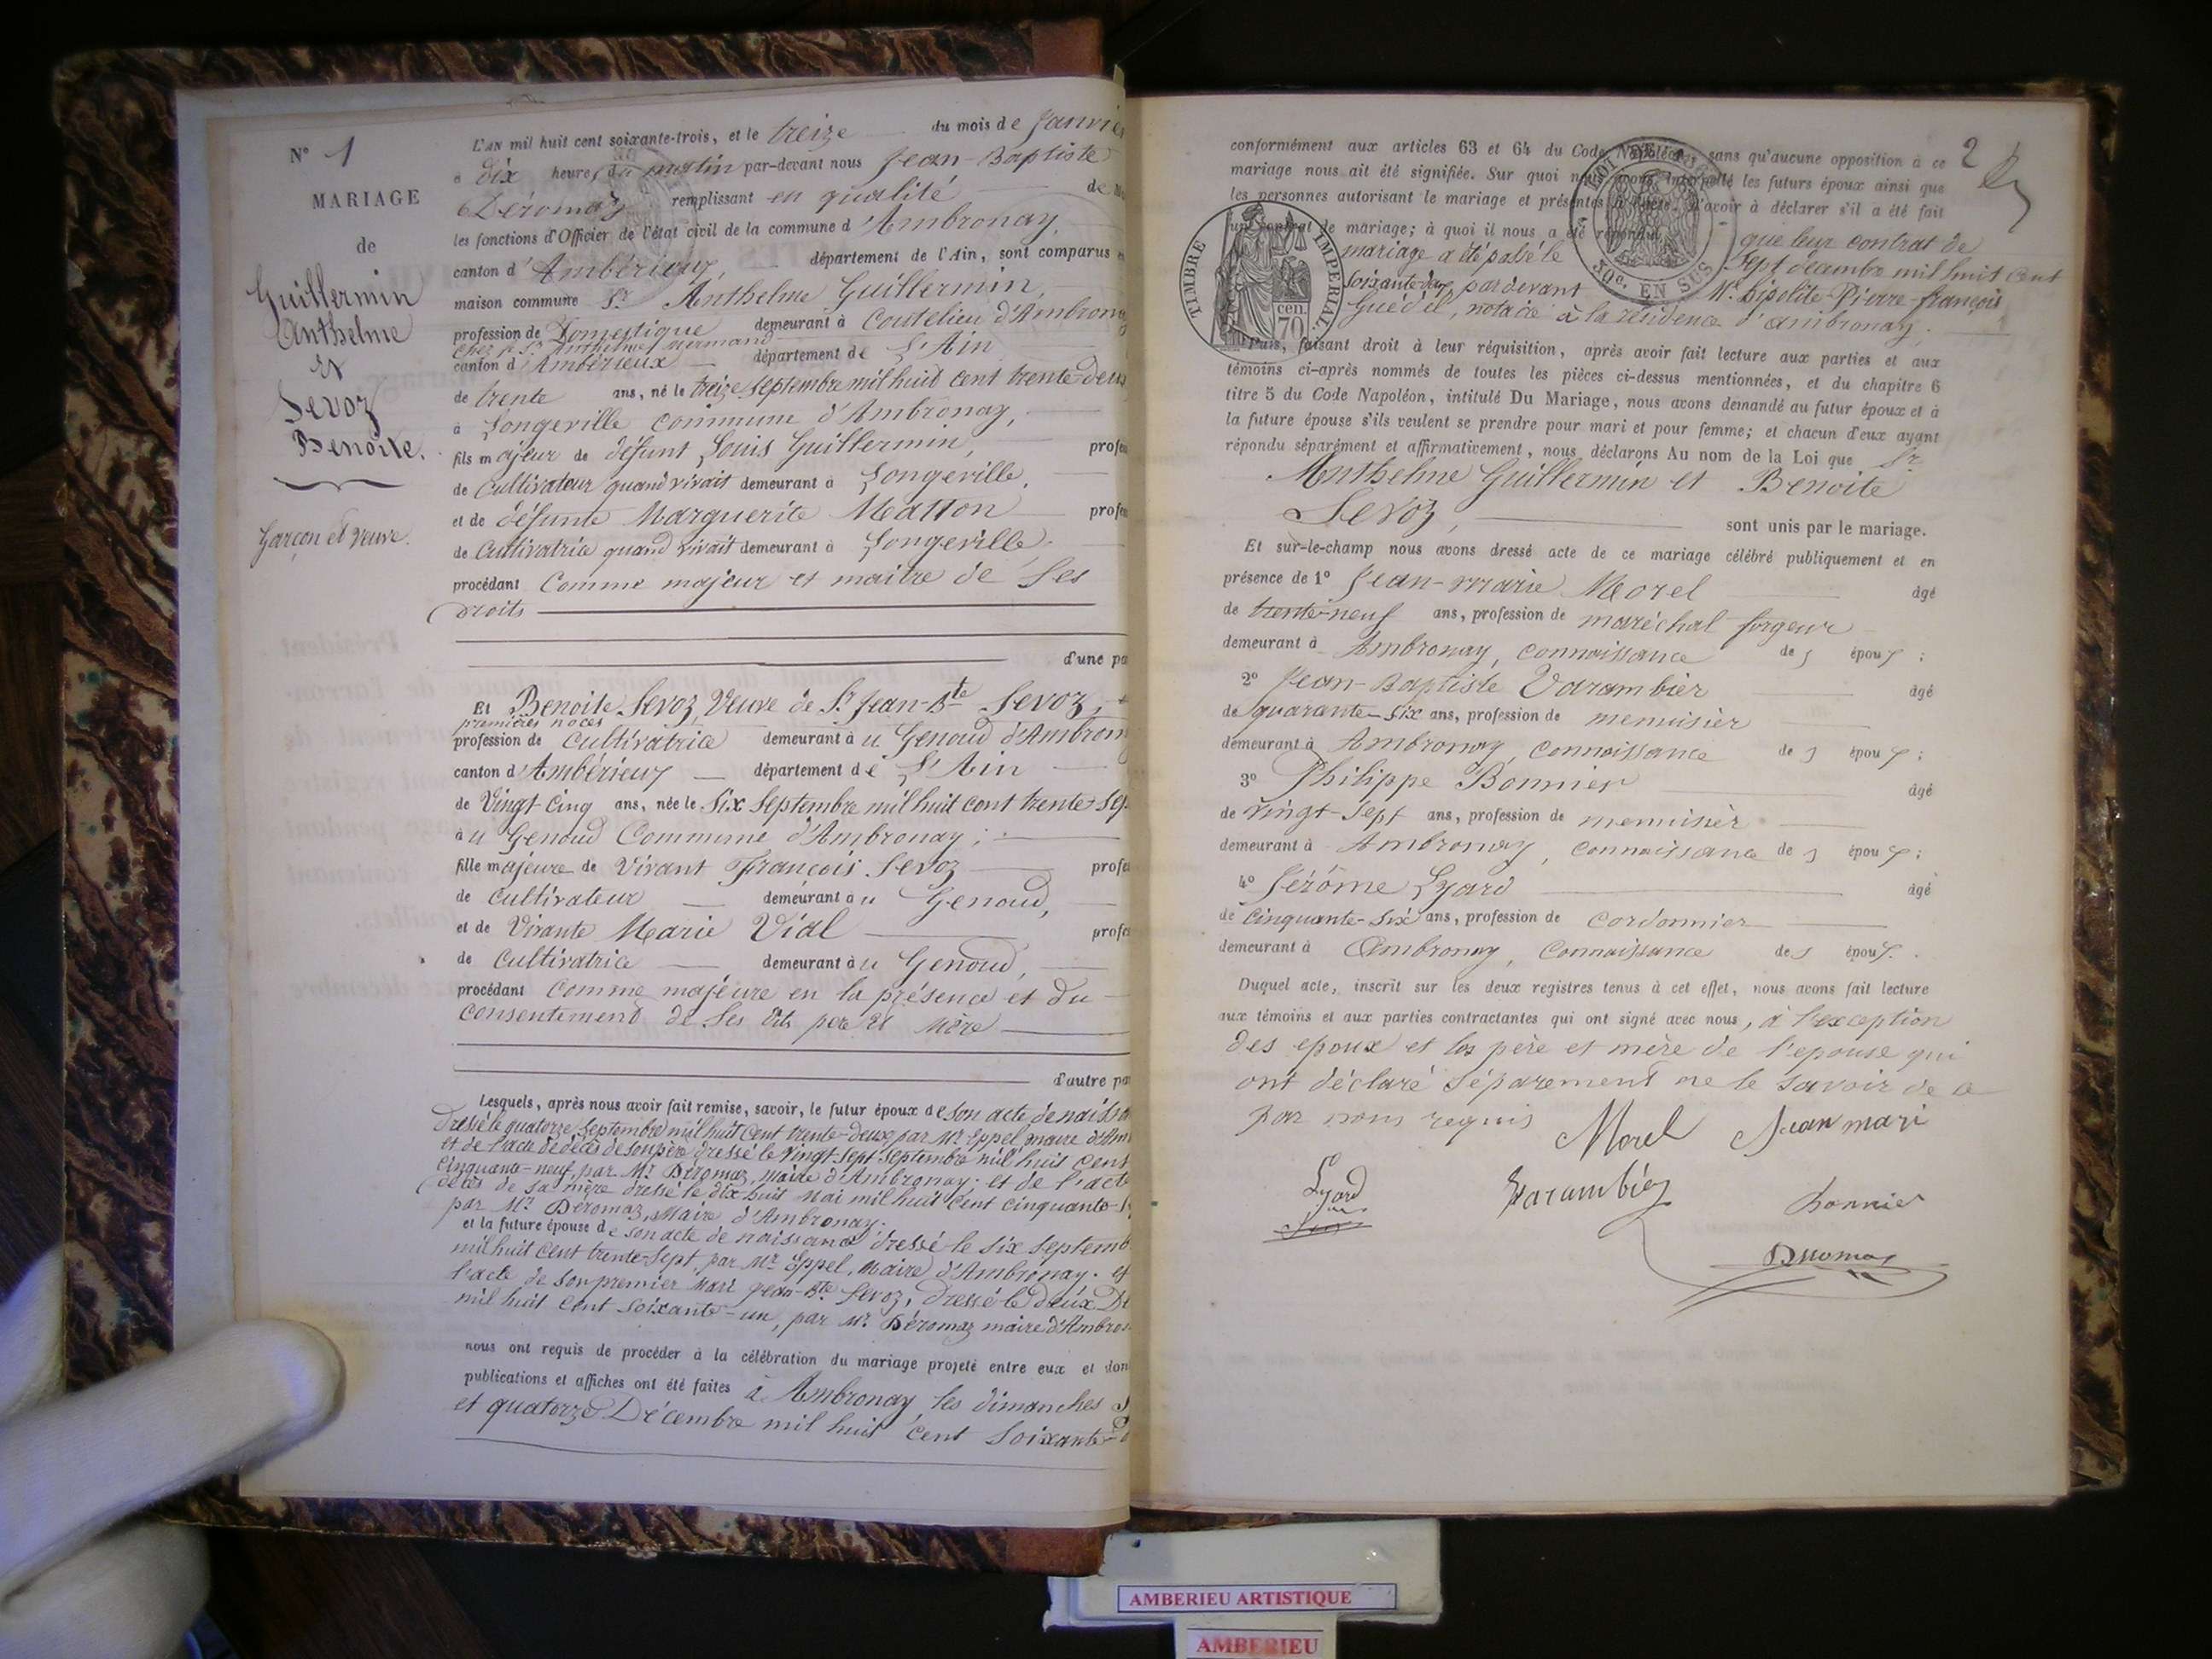 N° 1
MARIAGE
de
Guillermin
Anthelme
Et
Sevoz
Benoite.
Garçon et veuve.
L'AN mil huit cent soixante-trois, et le treize du mois de Janvi
à dix heures du matin par-devant nous Jean-Baptiste
Déromaz remplissant en qualité de
les fonctions d'Officier de l'état civil de la commune d'Ambronay,
canton d'Ambérieux, département de l'Ain, sont comparus
maison commune Sr Anthelme Guillermin,
profession de Domestique demeurant à Coutelieu d'Ambrona
chez le Sr Anthelme
canton d'Ambérieux département de L'Ain
de trente ans, né le treize septembre mil huit cent trente-deux
à Longeville commune d'Ambronay,
fils majeur de défunt Louis Guillermin, profes
de Cultivateur quand vivait demeurant à Longeville,
et de défunte Marguerite Matton profes
de Cultivatrice quand vivait demeurant à Longeville.
procédant Comme majeur et maitre de Ses
droits
d'une pa
Et Benoite Sevoz, Veuve de Sr Jean-Bte Sevoz,
premières noces
profession de Cultivatrice demeurant à u Genoud d'Ambron
canton d'Ambérieux département de L'Ain
de Vingt Cinq ans, née le Six Septembre mil huit cent trente sep
à u Genoud Commune d'Ambronay;
fille majeure de Vivant François Sevoz profes
de Cultivateur demeurant à u Genoud,
et de Vivante Marie Vial profes
de Cultivatrice demeurant à u Genoud,
procédant Comme majeure en la présence et du
Consentement de Ses dits père et Mère
d'autre pa
Lesquels, après nous avoir fait remise, savoir, le futur époux de son acte de naissa
dressé le quatorze Septembre mil huit cent trente-deux par Mr Eppel maire d'Am
et de l'acte de décès de son père dressé le Vingt Sept Septembre mil huit cent
Cinquante-neuf, par Mr Déromaz, maire d'Ambronay; et de l'acte
décès de sa mère dressé le dix huit Mai mil huit cent cinquante-
par Mr Déromaz, Maire d'Ambronay.
et la future épouse de son acte de naissance dressé le six septemb
mil huit cent trente-sept, par Mr Eppel, Maire d'Ambronay. et
l'acte de son premier Mari Jean-Bte Sevoz, dressé le deux Dé
mil huit cent soixante-un, par Mr Déromaz maire d'Ambron
nous ont requis de procéder à la célébration du mariage projeté entre eux et don
publications et affiches ont été faites à Ambronay les dimanches S
et quatorze Décembre mil huit cent Soixante-d
2
conformément aux articles 63 et 64 du Code Napoléon, sans qu'aucune opposition à ce
mariage nous ait été signifiée. Sur quoi nous avons interpellé les futurs époux ainsi que
les personnes autorisant le mariage et présentes à l'acte, d'avoir à déclarer s'il a été fait
un contrat de mariage; à quoi il nous a été répondu que leur contrat de
mariage a été passé le Sept décembre mil huit cent
soixante-deux pardevant Mr hipolite-Pierre-françois
Guédel, notaire à la résidence d'ambronay.
TIMBRE IMPERIAL.
cen. 70
LOI DE
50c. EN SUS
Puis, faisant droit à leur réquisition, après avoir fait lecture aux parties et aux
témoins ci-après nommés de toutes les pièces ci-dessus mentionnées, et du chapitre 6
titre 5 du Code Napoléon, intitulé Du Mariage, nous avons demandé au futur époux et à
la future épouse s'ils veulent se prendre pour mari et pour femme; et chacun d'eux ayant
répondu séparément et affirmativement, nous déclarons Au nom de la Loi que Sr
Anthelme Guillermin et Benoite
Sevoz, sont unis par le mariage.
Et sur-le-champ nous avons dressé acte de ce mariage célébré publiquement et en
présence de 1° Jean-marie Morel âgé
de trente-neuf ans, profession de maréchal forgeur
demeurant à Ambronay, connaissance des époux;
2° Jean-Baptiste Varambier âgé
de quarante-six ans, profession de menuisier
demeurant à Ambronay, connaissance des époux;
3° Philippe Bonnier âgé
de vingt-sept ans, profession de menuisier
demeurant à Ambronay, connaissance des époux;
4° Jérôme Lyard âgé
de Cinquante-Six ans, profession de cordonnier
demeurant à Ambronay, Connaissance des époux.
Duquel acte, inscrit sur les deux registres tenus à cet effet, nous avons fait lecture
aux témoins et aux parties contractantes qui ont signé avec nous, à l'exception
des epoux et les père et mère de l'epouse qui
ont déclaré séparement ne le savoir de ce
par nous requis
Morel Jean mari
Lyard
Varambier
Bonnier
Déromaz
AMBERIEU ARTISTIQUE
AMBERIEU